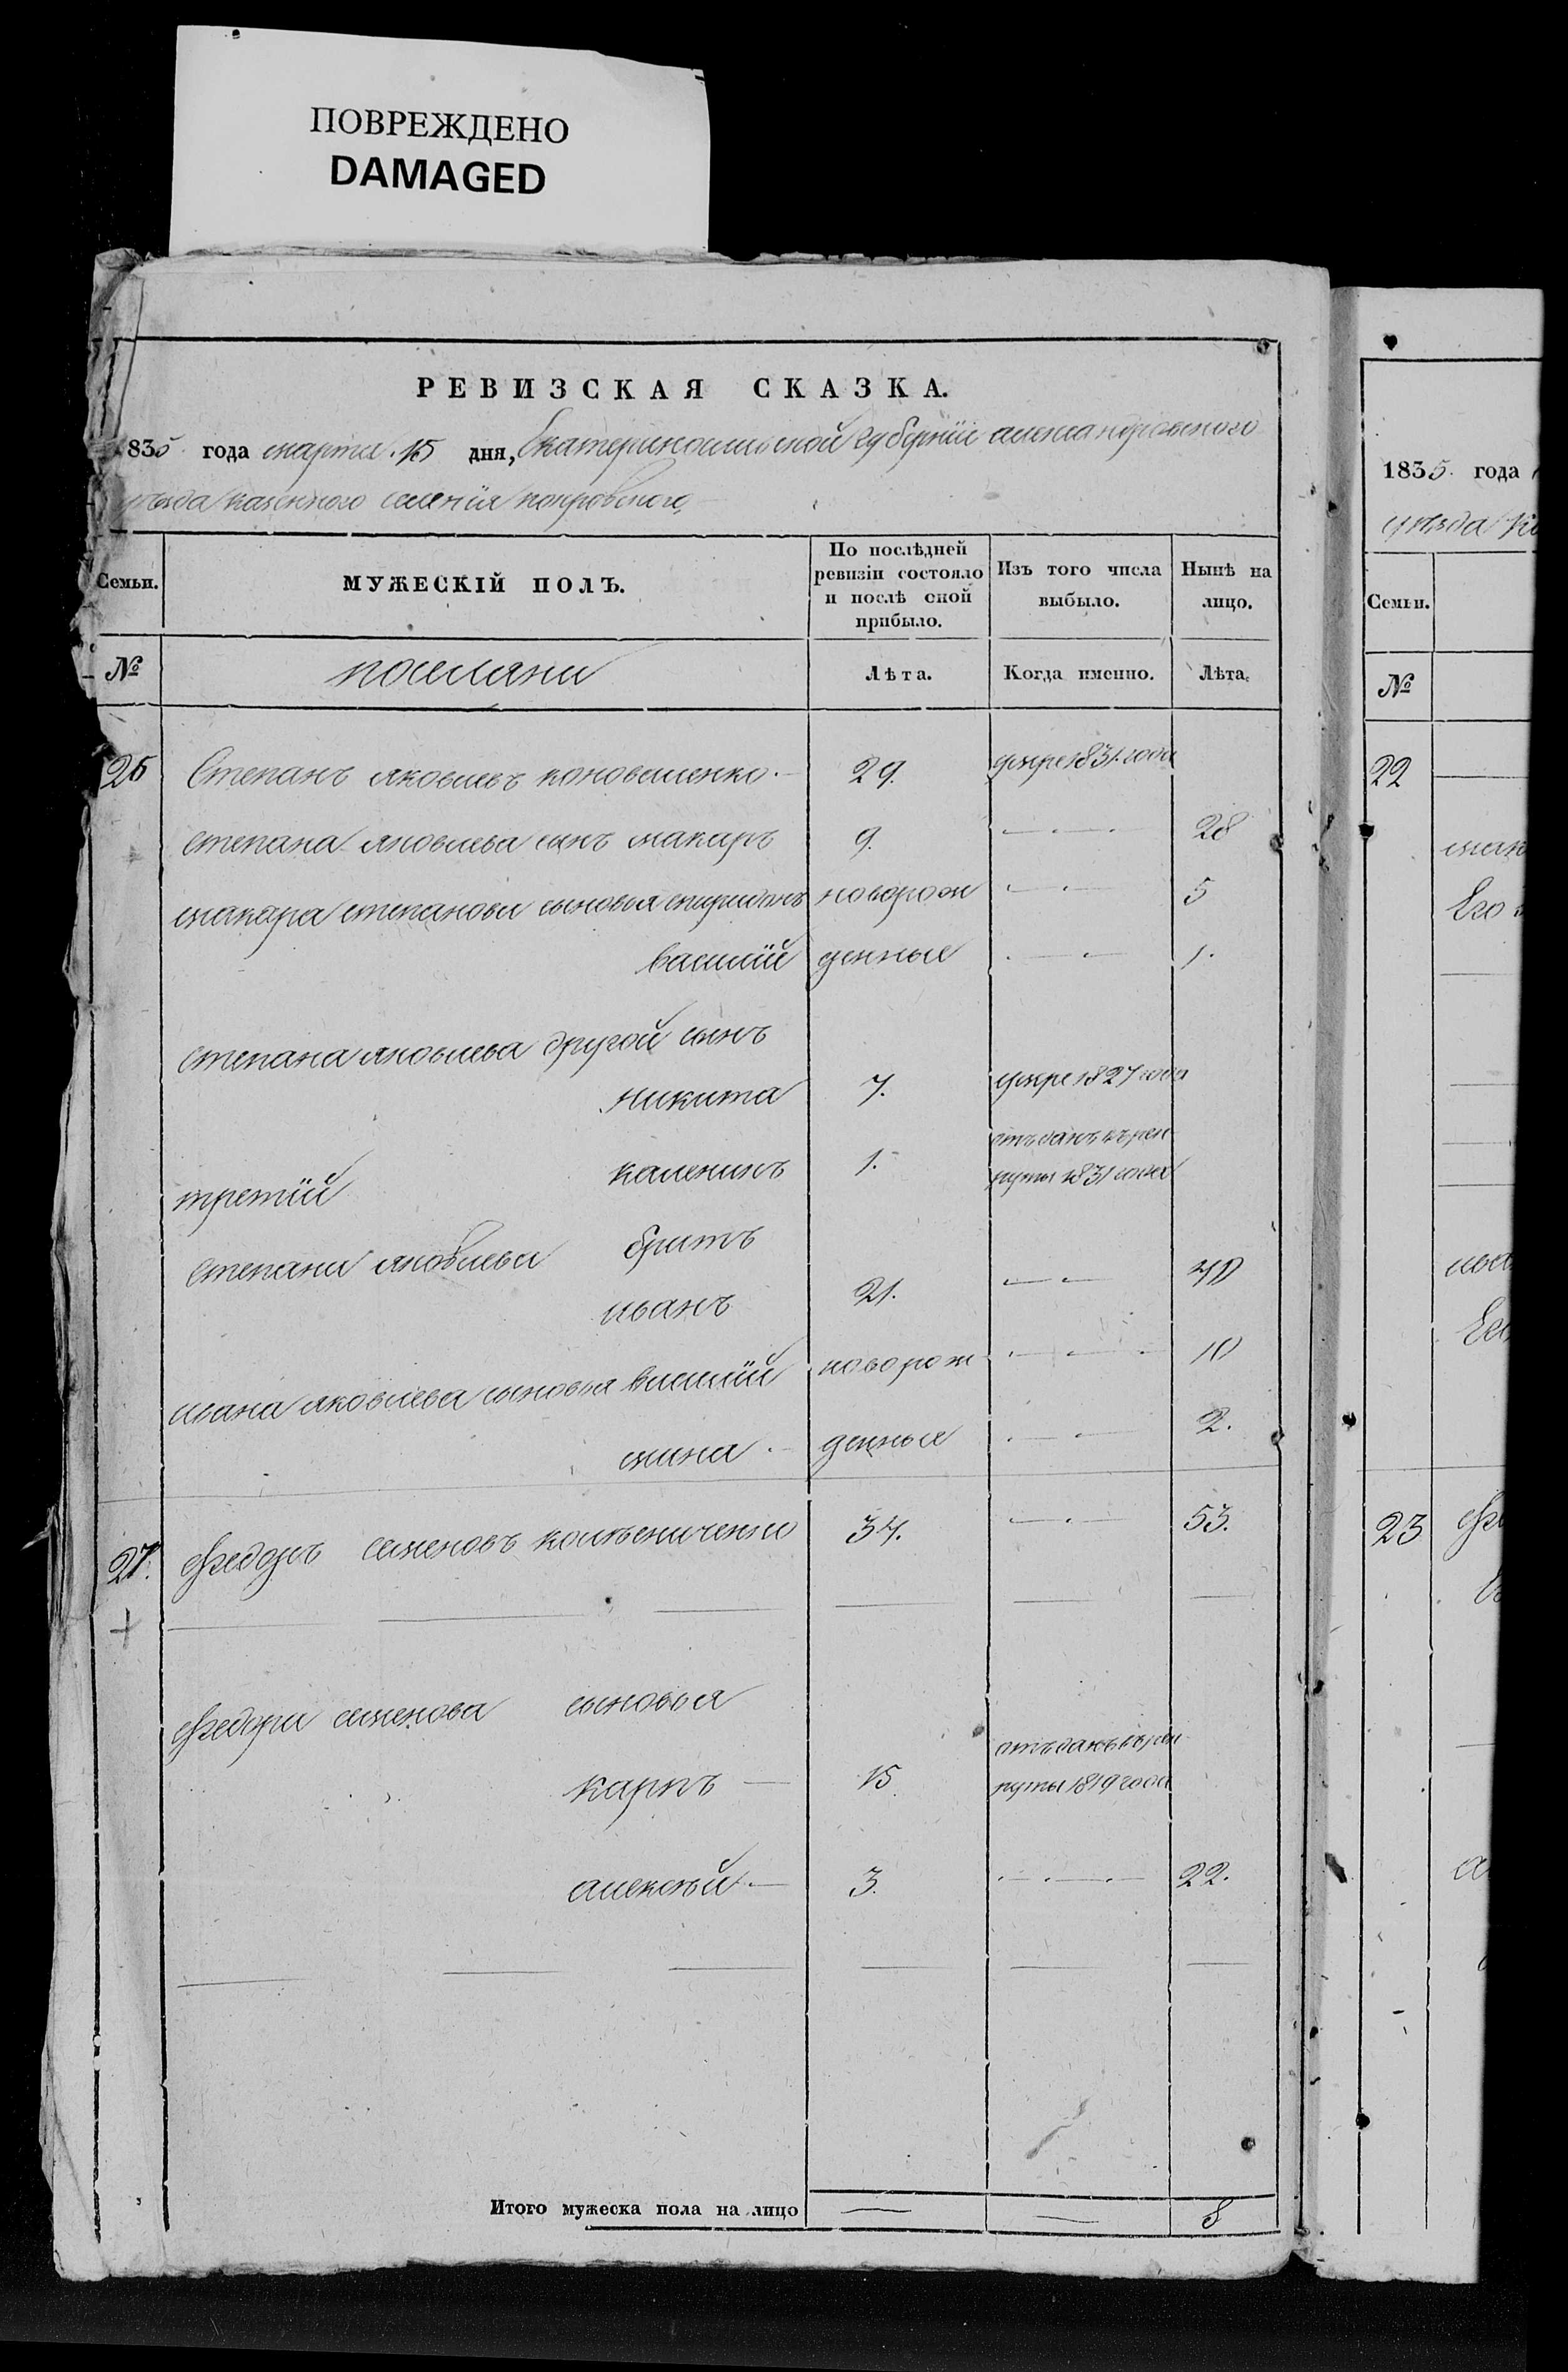 ПОВРЕЖДЕНО
DAMAGED
РЕВИЗСКАЯ СКАЗКА.
1835 года марта 15 дня, Екатеринославской губернїи александровского
уѣзда казенного селенїя покровского,
Семьи. МУЖЕСКІЙ ПОЛЪ. По послѣдней ревизіи состояло и послѣ оной прибыло. Изъ того числа выбыло. Нынѣ на лицо.
№ поселяни Лѣта. Когда именно. Лѣта.
26 Степанъ яковлевъ коноваленко. 29. умре 1831 года
степана яковлева сынъ макаръ 9. 28
макара степанова сыновья спиридонъ новорож 5
василїй денные 1.
степана яковлева другой сынъ
никита 7. умре 1827 года
отъданъ въ рек
третїй каленикъ 1. руты 1831 года
степана яковлева братъ
иванъ 21. 40
ивана яковлева сыновья василїй новорож 10
мина денные 2.
27. Федоръ семеновъ 34. 53.
Федора семенова сыновья
отъданъ въ рек
карпъ 15 руты 1819 года
алексѣй 3. 22.
Итого мужеска пола на лицо 8
1835 года
уѣзда
Семьи.
№
22
Его
23